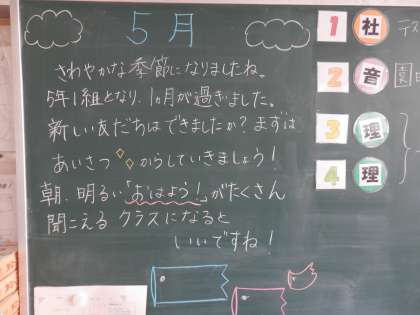 5月
さわやかな季節になりましたね。
5年1組となり、1ヵ月が過ぎました。
新しい友だちはできましたか？まずは
あいさつからしていきましょう！
朝、明るい「おはよう！」がたくさん
聞こえるクラスになると
いいですね！
1 社 テス
2 音
3 理
4 理